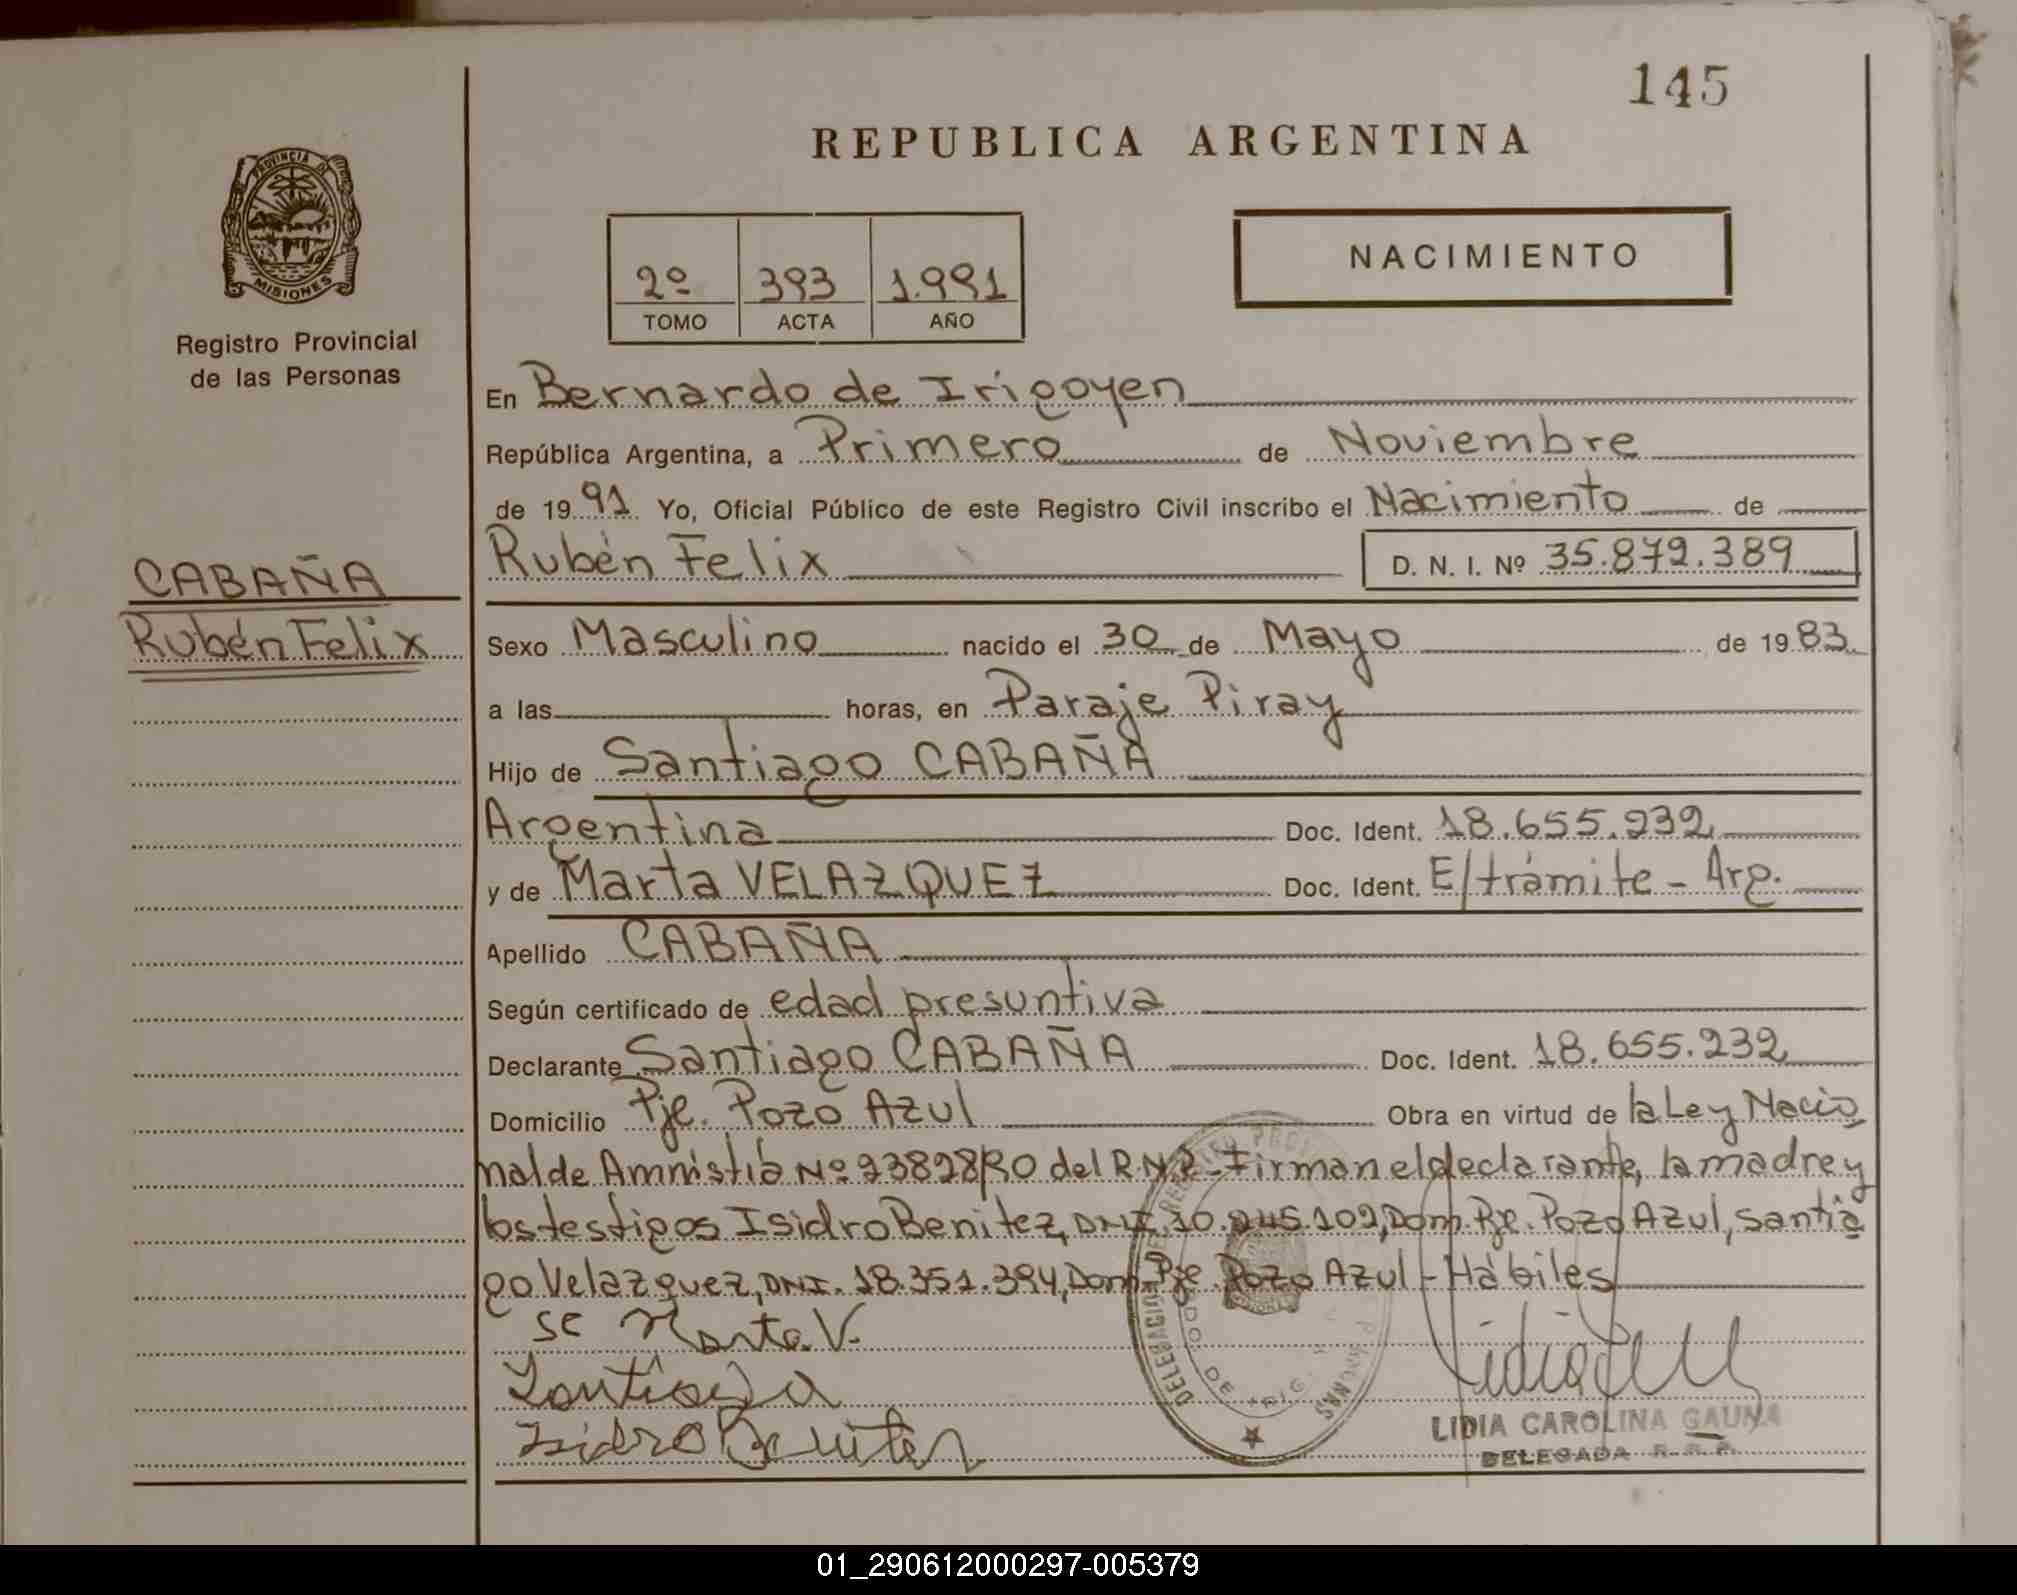 145
REPUBLICA ARGENTINA
PROVINCIA DE
MISIONES
Registro Provincial
de las Personas
2º 393 1.991
TOMO ACTA AÑO
NACIMIENTO
En Bernardo de Irigoyen
República Argentina, a Primero de Noviembre
de 1991 Yo, Oficial Público de este Registro Civil inscribo el Nacimiento de
Rubén Felix D. N. I. Nº 35.872.389
CABAÑA
Rubén Felix
Sexo Masculino nacido el 30 de Mayo de 1983
a las horas, en Paraje Piray
Hijo de Santiago CABAÑA
Argentina Doc. Ident. 18.655.232
y de Marta VELAZQUEZ Doc. Ident. E/trámite - Arg.
Apellido CABAÑA
Según certificado de edad presuntiva
Declarante Santiago CABAÑA Doc. Ident. 18.655.232
Domicilio Pje. Pozo Azul Obra en virtud de la Ley Nacio
nal de Amnistía Nº 23828/90 del R.N.P. - Firman el declarante, la madre y
los testigos Isidro Benitez, DNI. Dom. Pje. Pozo Azul, Santia
go Velazquez, DNI. 18.351.394, Dom. Pje. Pozo Azul - Hábiles
SC Marta V.
Isidro Benitez
LIDIA CAROLINA GAUNA
DELEGADA R. R. P.
01_290612000297-005379